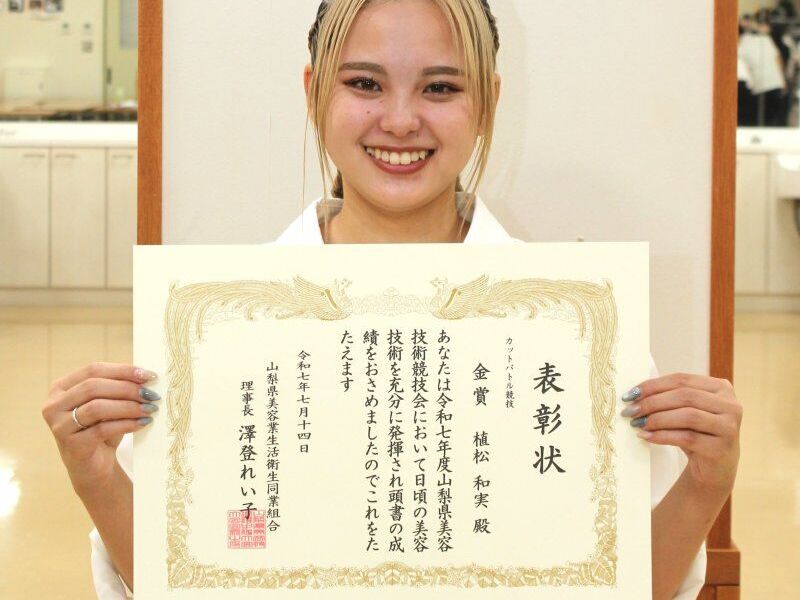 表彰状
カットバトル競技
金賞 植松 和実 殿
あなたは令和七年度山梨県美容
技術競技会において日頃の美容
技術を充分に発揮され頭書の成
績をおさめましたのでこれをた
たえます
令和七年七月十四日
山梨県美容業生活衛生同業組合
理事長 澤登れい子